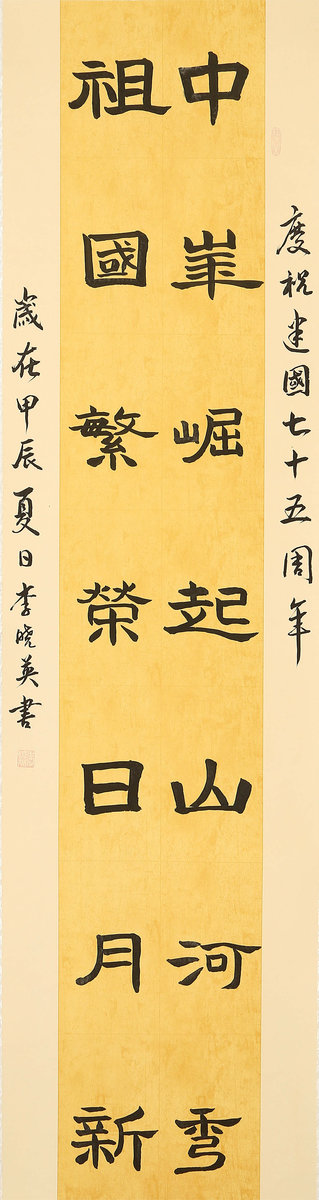 慶祝建國七十五周年
中華崛起山河秀
祖國繁榮日月新
歲在甲辰夏日李晓英書